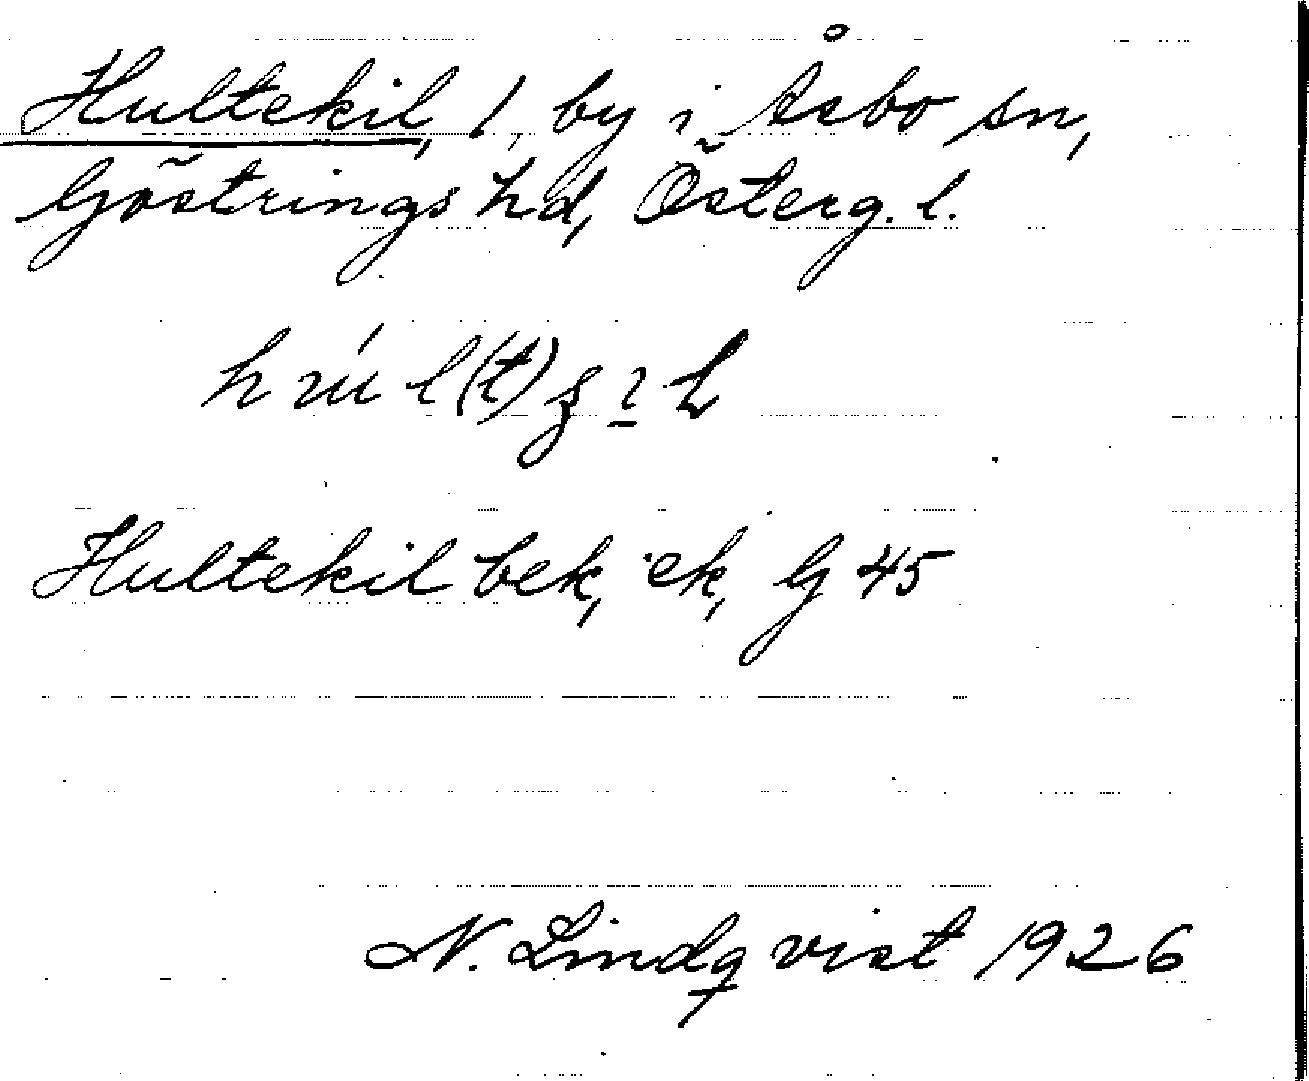 Hultekil, 1, by i Åsbo sn,
Göstrings hd, Österg. l.
Hultekil bek, ek, G 45
N. Lindqvist 1926